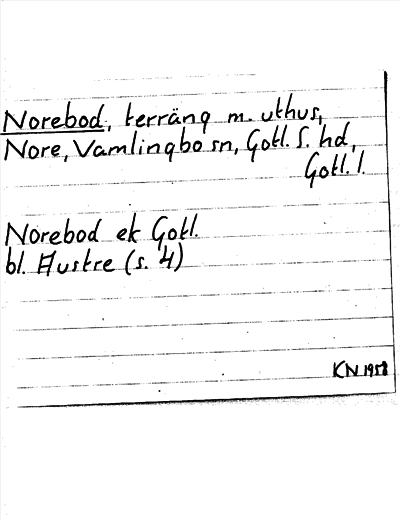 Norebod, terräng m. uthus,
Nore, Vamlingbo sn, Gotl. S. hd,
Gotl. l.
Norebod ek Gotl.
bl. Hustre (s. 4)
KN 1958